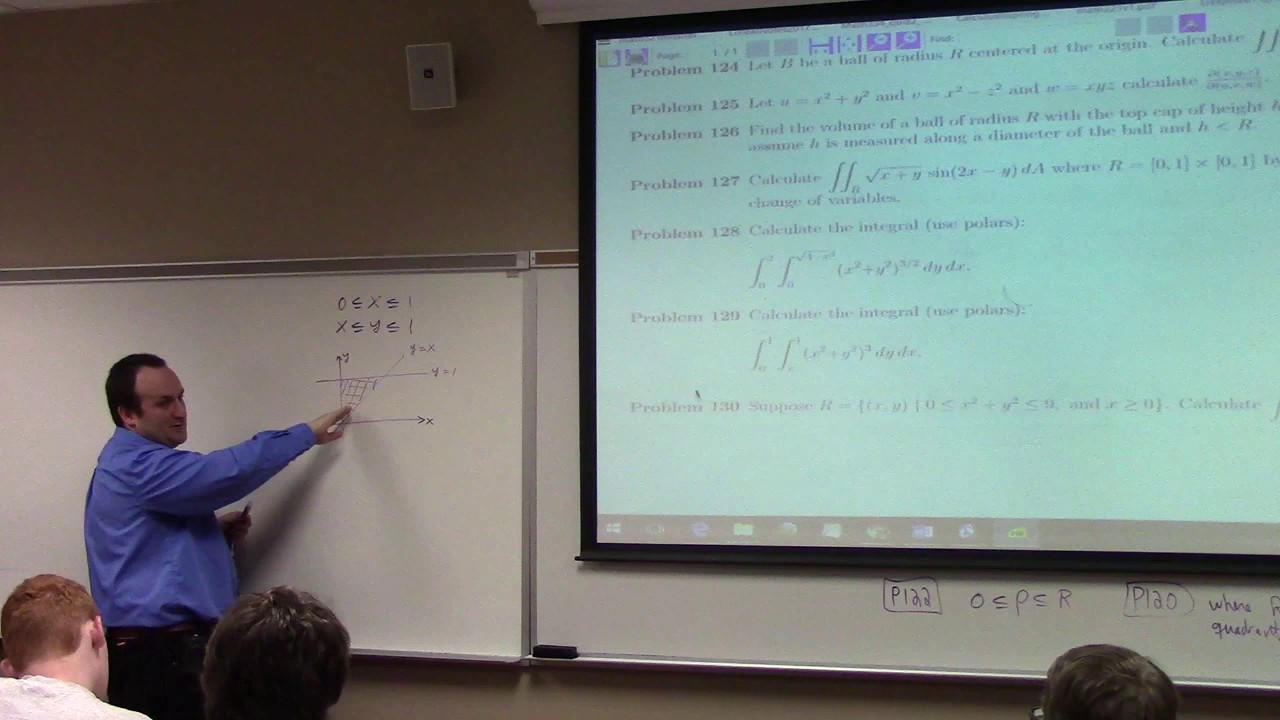 0 ≤ x ≤ 1
x ≤ y ≤ 1
y
y=x
y=1
x
Page: 1 / 1 Find:
Problem 124 Let B be a ball of radius R centered at the origin. Calculate ∬
Problem 125 Let u = x² + y² and v = x² − z² and w = xyz calculate ∂(x,y,z)/∂(u,v,w).
Problem 126 Find the volume of a ball of radius R with the top cap of height h
assume h is measured along a diameter of the ball and h < R.
Problem 127 Calculate ∬_R √(x + y) sin(2x − y) dA where R = [0, 1] × [0, 1] by
change of variables.
Problem 128 Calculate the integral (use polars):
∫₀² ∫₀^√(4−x²) (x²+y²)^{3/2} dy dx.
Problem 129 Calculate the integral (use polars):
∫₀¹ ∫ₓ¹ (x²+y²)³ dy dx.
Problem 130 Suppose R = {(x, y) | 0 ≤ x² + y² ≤ 9, and x ≥ 0}. Calculate
P122 0 ≤ ρ ≤ R P120 where